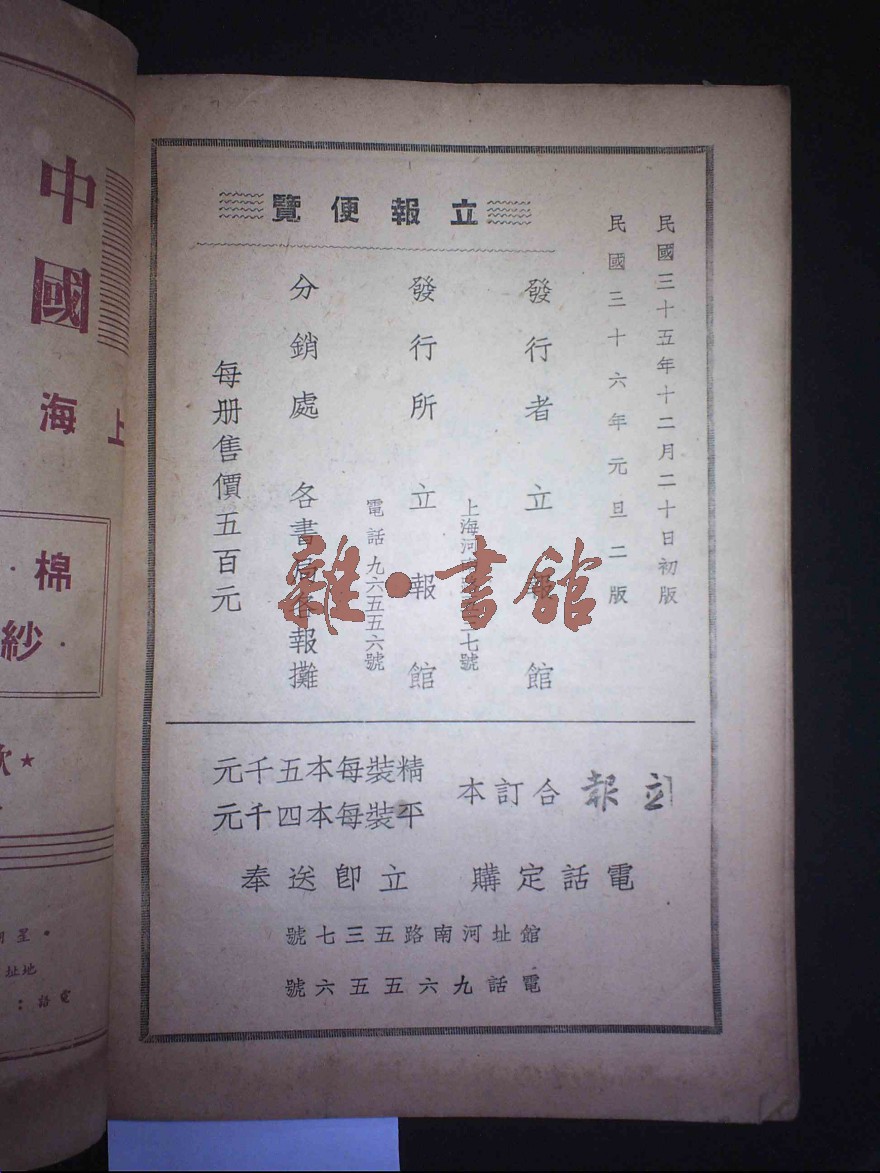 民國三十五年十二月二十日初版
民國三十六年元旦二版
立報便覽
發行者 立報館
上海河 三七號
發行所 立報館
電話九六五五六號
分銷處 各書局各報攤
每册售價五百元
立報 合訂本
精裝每本五千元
平裝每本四千元
電話定購 立卽送奉
館址河南路五三七號
電話九六五五六號
雜·書館
中國
上海
棉紗
地址
電話：